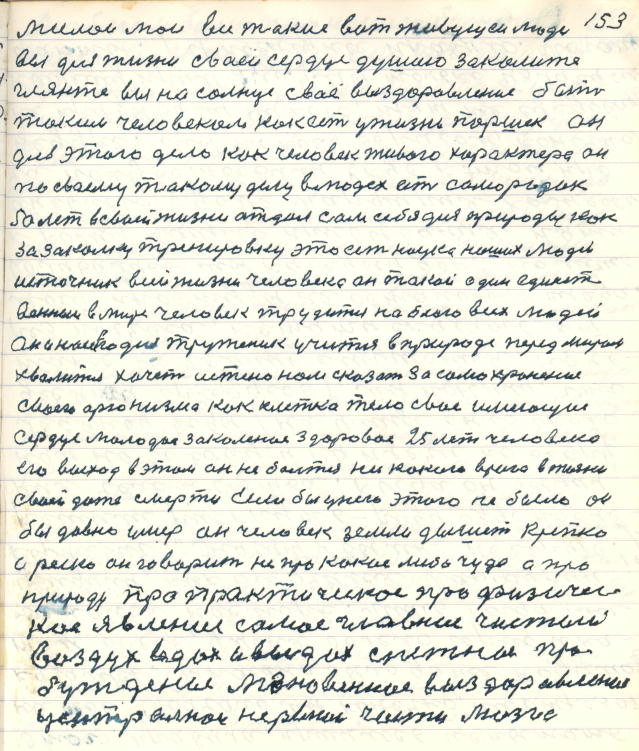 153
милои мои все такие вот живущеи люди
вы для жизни своей сердце душою закалите
гляньте вы на солнце своё выздоровление быть
таким человеком как ест у жизни Паршек он
для этого дела как человек живого характера он
по своему такому делу в людех есть самородак
50 лет в своей жизни отдал сам себя для природы как
за закалку тренировку это ест наука наших людей
источник всей жизни человека он такой один единст
венный в мире человек трудится на благо всех людей
он труженик учится в природе перед миром
хвалится хочет истено нам сказат за само хранение
своего арганизма как клетка тело свое имеющие
сердце молодое закаленое здоровое 25 лет человека
его выход в этом он не боится ни какого врага в жизни
своей даже смерти Если бы у него этого не было он
бы давно умер он человек земли дышет крепко
а реско он говорит не про какое либо чудо а про
природу про практическое про физичес
кое явление самое главное чистый
воздух вдох и выдох снежное про
буждение мгновенное выздоровление
централное нервной части мозга